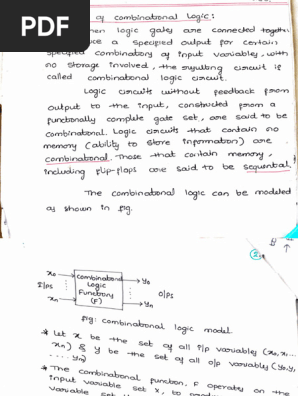 PDF
of combinational Logic:
when logic gates are connected together
a specified output for certain
specified combinations of input variables, with
no storage involved, the resulting circuit is
called combinational logic circuit.
Logic circuits without feedback from
output to the input, constructed from a
functionally complete gate set, are said to be
combinational. Logic circuits that contain no
memory (ability to store information) are
combinational. Those that contain memory,
including flip-flops are said to be sequential.
The combinational logic can be modeled
as shown in fig.
2
x0
I/ps
xn
combinational
Logic
Functions
(F)
y0
O/ps
yn
fig: combinational logic model.
* Let x be the set of all i/p variables (x0, x1...
xn) & y be the set of all o/p variables (y0, y1,
.... yn)
* The combinational function, F operates on the
input variable set x, to
variable set